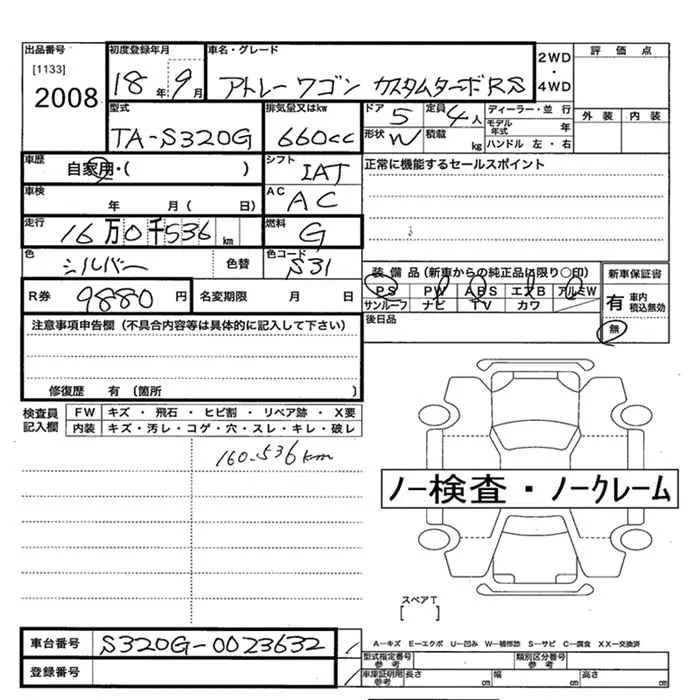 出品番号
[1133]
2008
初度登録年月
18年 9月
車名・グレード
アトレーワゴン カスタムターボRS
2WD
・
4WD
評価点
外装 内装
型式
TA-S320G
排気量又はkw
660cc
ドア 5
定員 4人
形状 W
積載 kg
ディーラー・並行
モデル年式 年
ハンドル 左・右
車歴
自家用・( )
シフト
IAT
正常に機能するセールスポイント
車検
年 月( 日)
AC
AC
走行
16万0千536km
燃料
G
色
シルバー
色替
色コード
S31
装備品(新車からの純正品に限り○印)
PS PW ABS エアB アルミW
サンルーフ ナビ TV カワ
新車保証書
有 車内積込無効
無
R券
9880円
名変期限 月 日
後日品
注意事項申告欄(不具合内容等は具体的に記入して下さい)
修復歴 有(箇所 )
検査員記入欄
FW キズ・飛石・ヒビ割・リペア跡・X要
内装 キズ・汚レ・コゲ・穴・スレ・キレ・破レ
160-536km
ノー検査・ノークレーム
スペアT
[ ]
車台番号
S320G-0023632
登録番号
A－キズ E－エクボ U－凹み W－補修跡 S－サビ C－腐食 XX－交換済
型式指定番号 参考
類別区分番号 参考
車庫証明用 参考
長さ cm 幅 cm 高さ cm